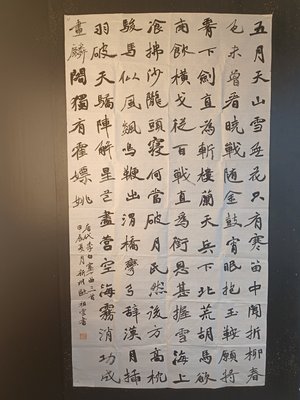 五月天山雪無花只有寒笛中聞折柳春
色未曾看曉戰隨金鼓宵眠抱玉鞍願將
腰下劍直為斬樓蘭天兵下北荒胡馬欲
南飲橫戈從百戰直為銜恩甚握雪海上
飡拂沙隴頭寢何當破月氏然後方高枕
駿馬似風飆鳴鞭出渭橋彎弓辭漢月插
羽破天驕陣解星芒盡營空海霧消功成
畫麟閣獨有霍嫖姚
唐代李白塞下曲三首
夏月書